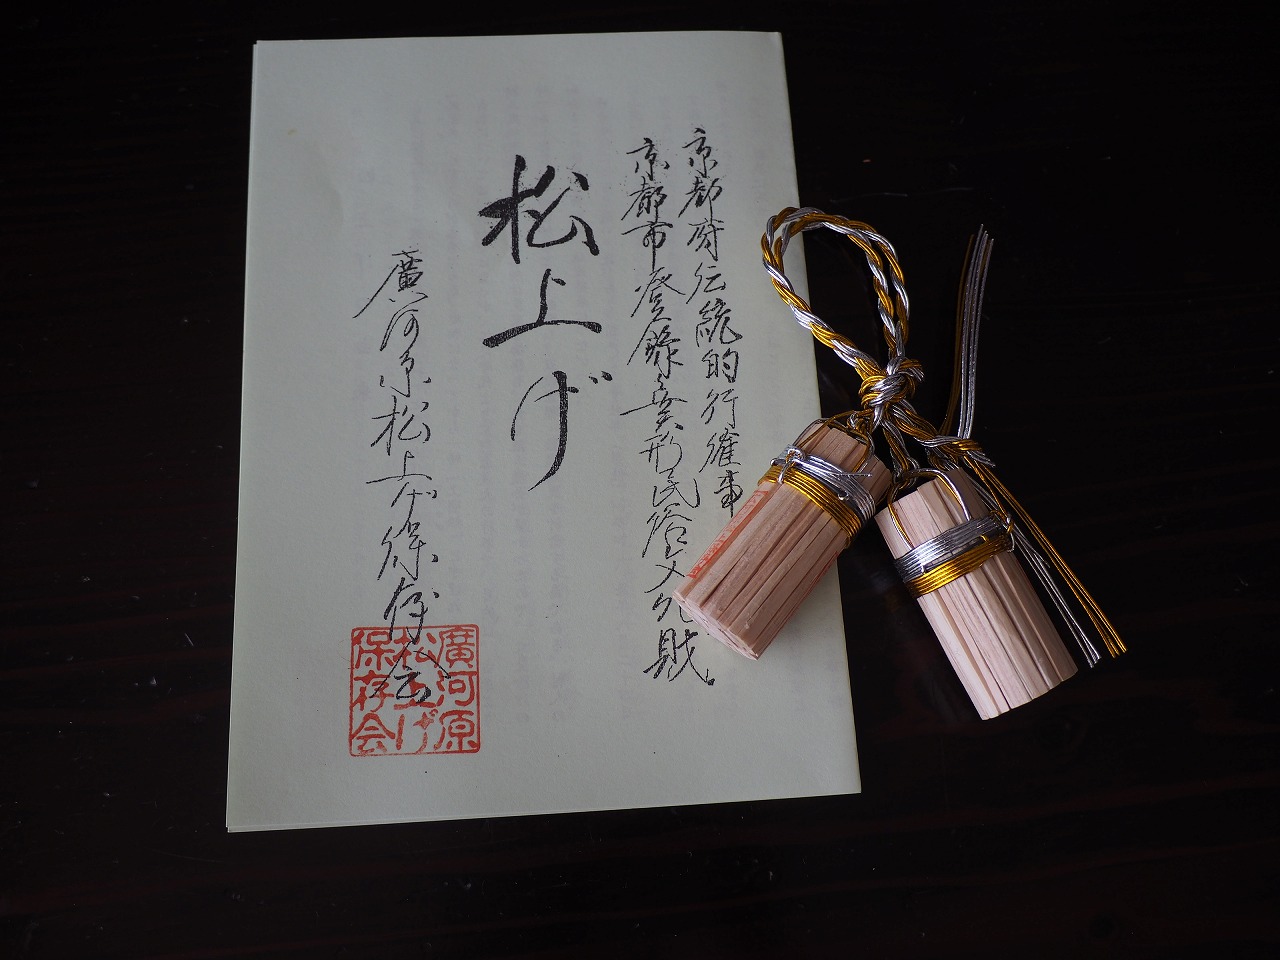 京都府伝統的行催事
京都市登録無形民俗文化財
松上げ
廣河原松上げ保存会
廣河原
松上げ
保存会